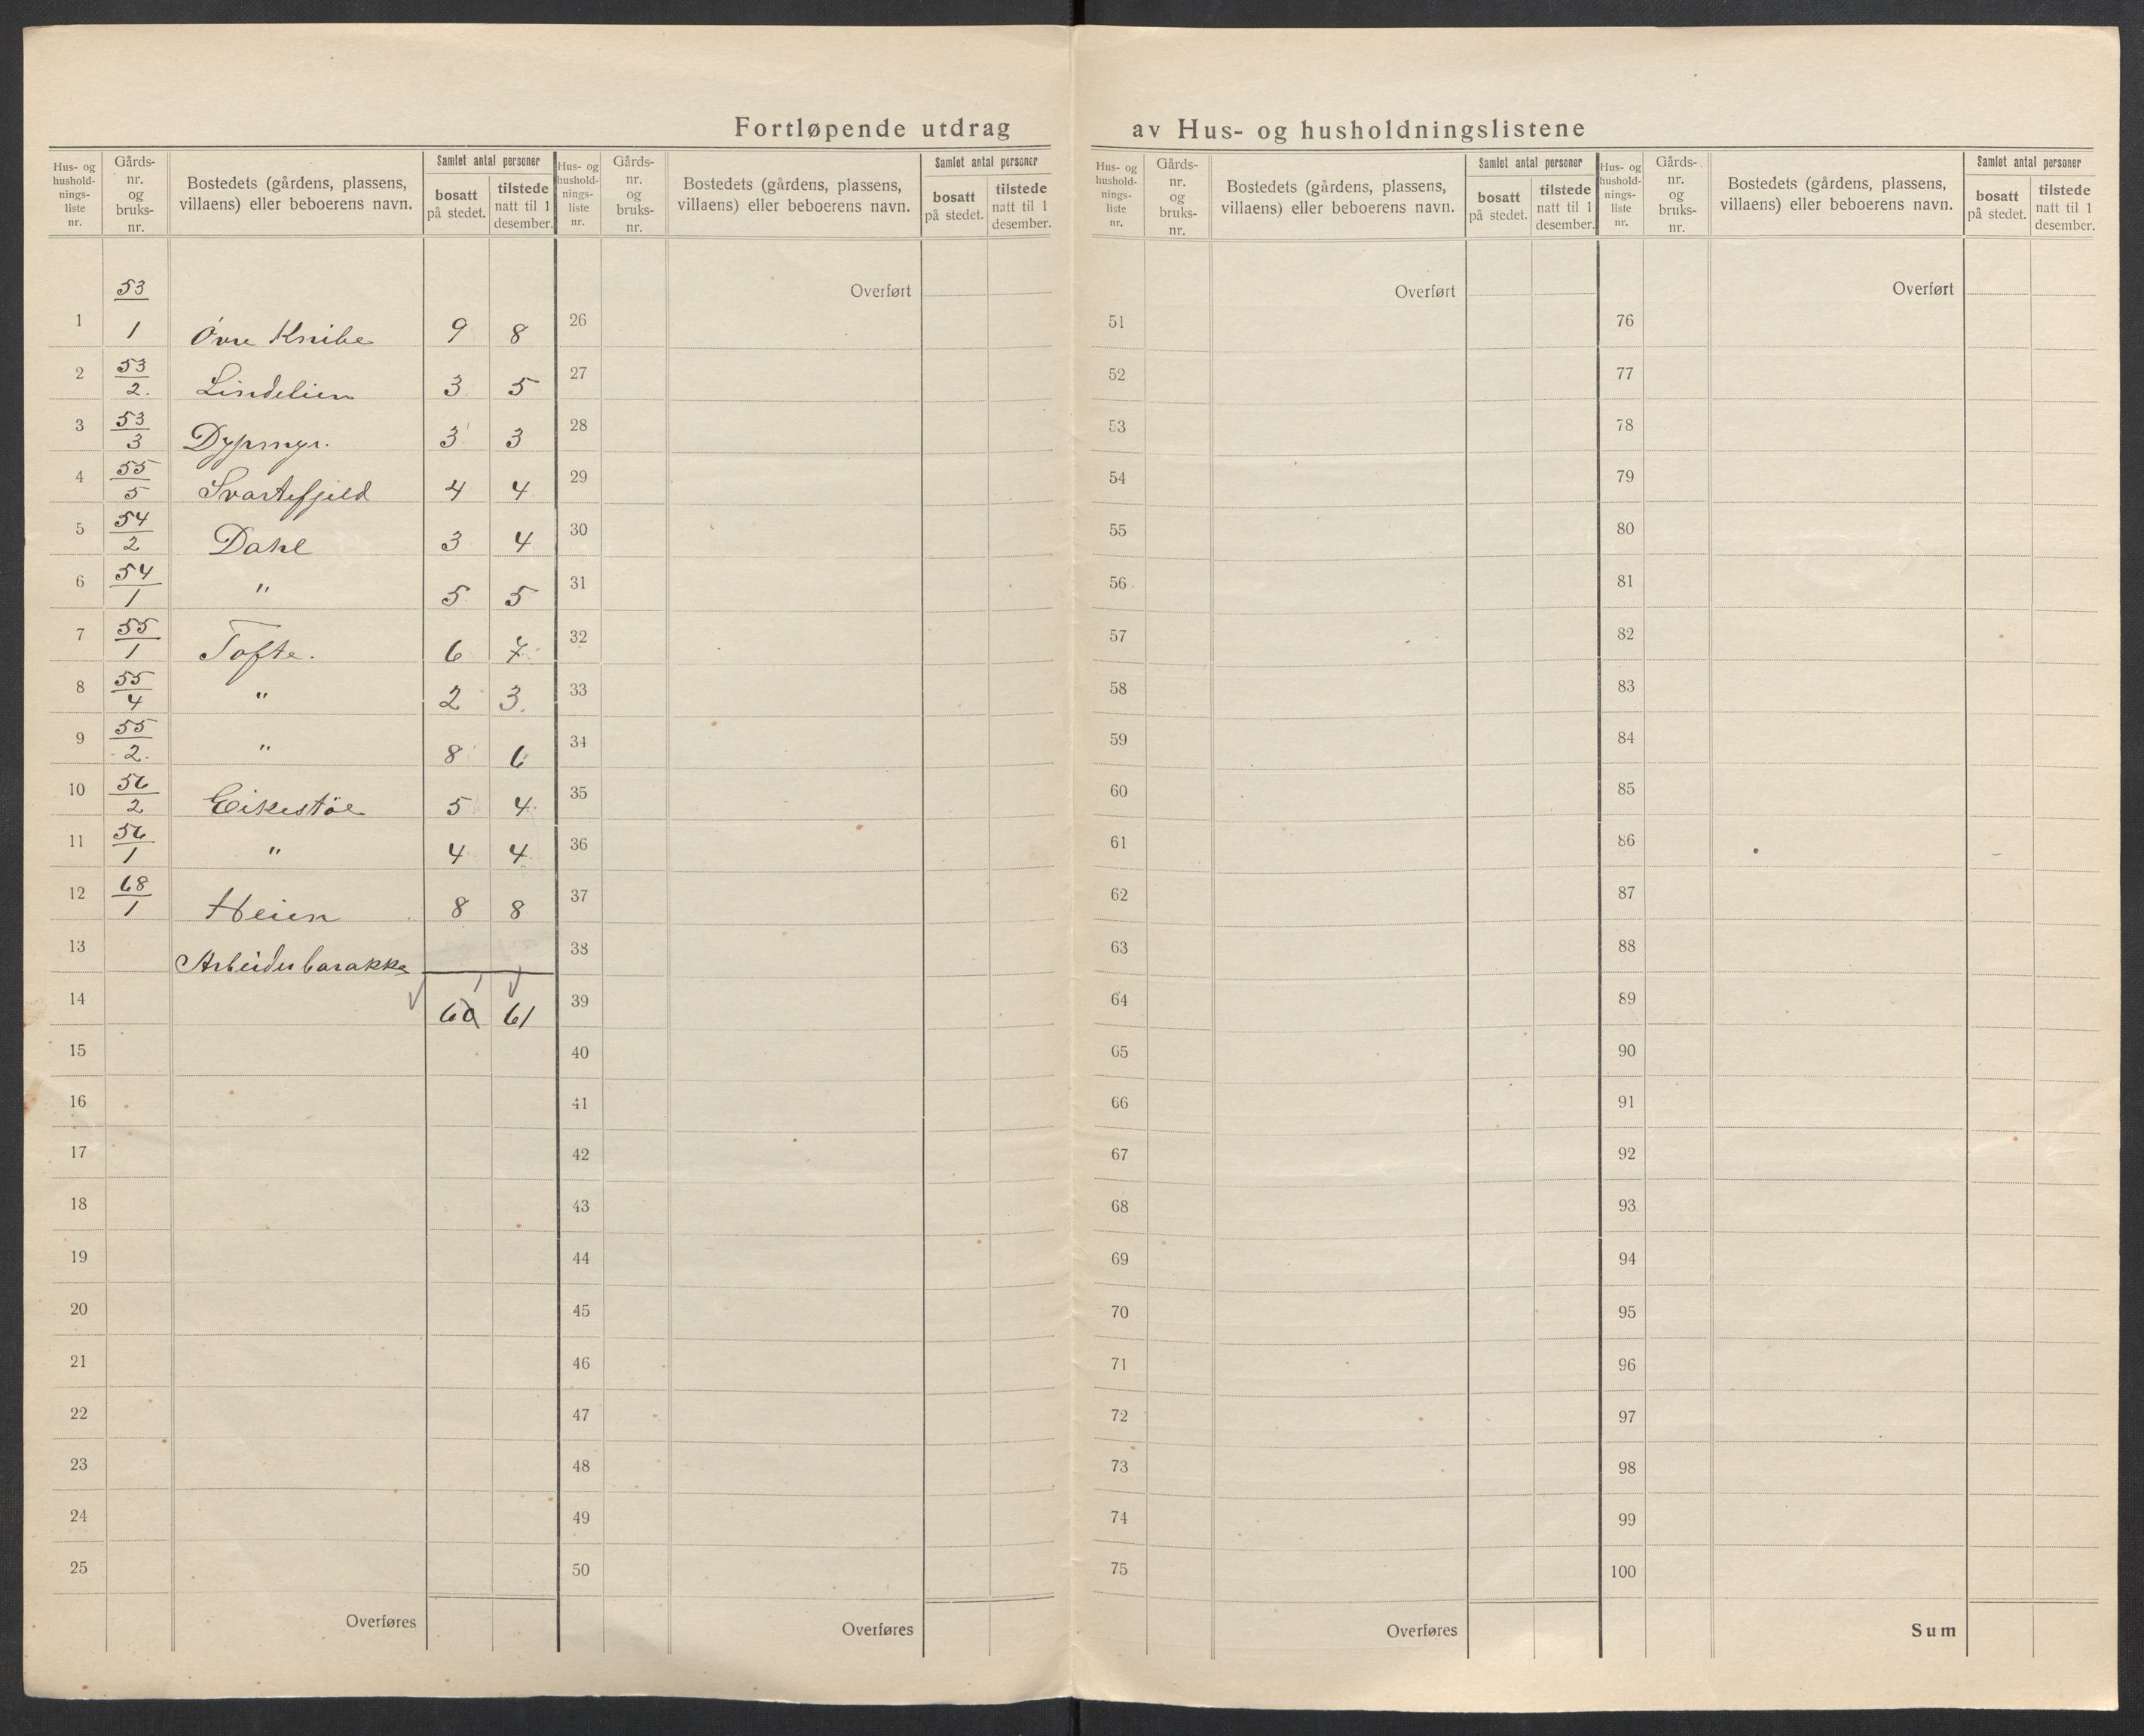 Fortløpende utdrag av Hus- og husholdningslistene
Hus- og hushold-nings-liste nr. | Gårds-nr. og bruks-nr. | Bostedets (gårdens, plassens, villaens) eller beboerens navn. | Samlet antal personer | bosatt på stedet. | tilstede natt til 1 desember.
Hus- og hushold-nings-liste nr. | Gårds-nr. og bruks-nr. | Bostedets (gårdens, plassens, villaens) eller beboerens navn. | Samlet antal personer | bosatt på stedet. | tilstede natt til 1 desember.
Hus- og hushold-nings-liste nr. | Gårds-nr. og bruks-nr. | Bostedets (gårdens, plassens, villaens) eller beboerens navn. | Samlet antal personer | bosatt på stedet. | tilstede natt til 1 desember.
Hus- og hushold-nings-liste nr. | Gårds-nr. og bruks-nr. | Bostedets (gårdens, plassens, villaens) eller beboerens navn. | Samlet antal personer | bosatt på stedet. | tilstede natt til 1 desember.
1 53/1 Övre Knibe 9 8
2 53/2. Lindelien 3 5
3 53/3 Dypmyr. 3 3
4 55/5 Svartefjeld 4 4
5 54/2 Dahl 3 4
6 54/1 " 5 5
7 55/1 Tofte. 6 7
8 55/4 " 2 3.
9 55/2. " 8 6
10 56/2 Eikestöl 5 4
11 56/1 " 4 4
12 68/1 Heien 8 8
13 Arbeiderbarakke
14 60 61
15
16
17
18
19
20
21
22
23
24
25
Overføres
Overført
26
27
28
29
30
31
32
33
34
35
36
37
38
39
40
41
42
43
44
45
46
47
48
49
50
Overføres
Overført
51
52
53
54
55
56
57
58
59
60
61
62
63
64
65
66
67
68
69
70
71
72
73
74
75
Overføres
Overført
76
77
78
79
80
81
82
83
84
85
86
87
88
89
90
91
92
93
94
95
96
97
98
99
100
Sum